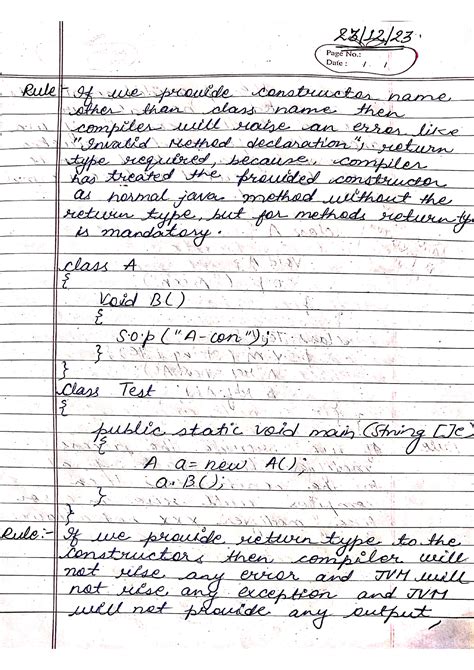 23/12/23.
Page No.:
Date: / /
Rule:- If we provide constructor name
other than class name then
compiler will raise an error like
"Invalid Method declaration", return
type required, because, compiler
has treated the provided constructor
as normal java method without the
return type, but for methods return ty
is mandatory.
class A
{
void B()
{
S.o.p ("A-con");
}
}
Class Test
{
public static void main (String []
{
A a = new A();
a.B();
}
}
Rule:- If we provide return type to the
constructors then compiler will
not rise any error and JVM will
not rise any exception and JVM
will not provide any output,